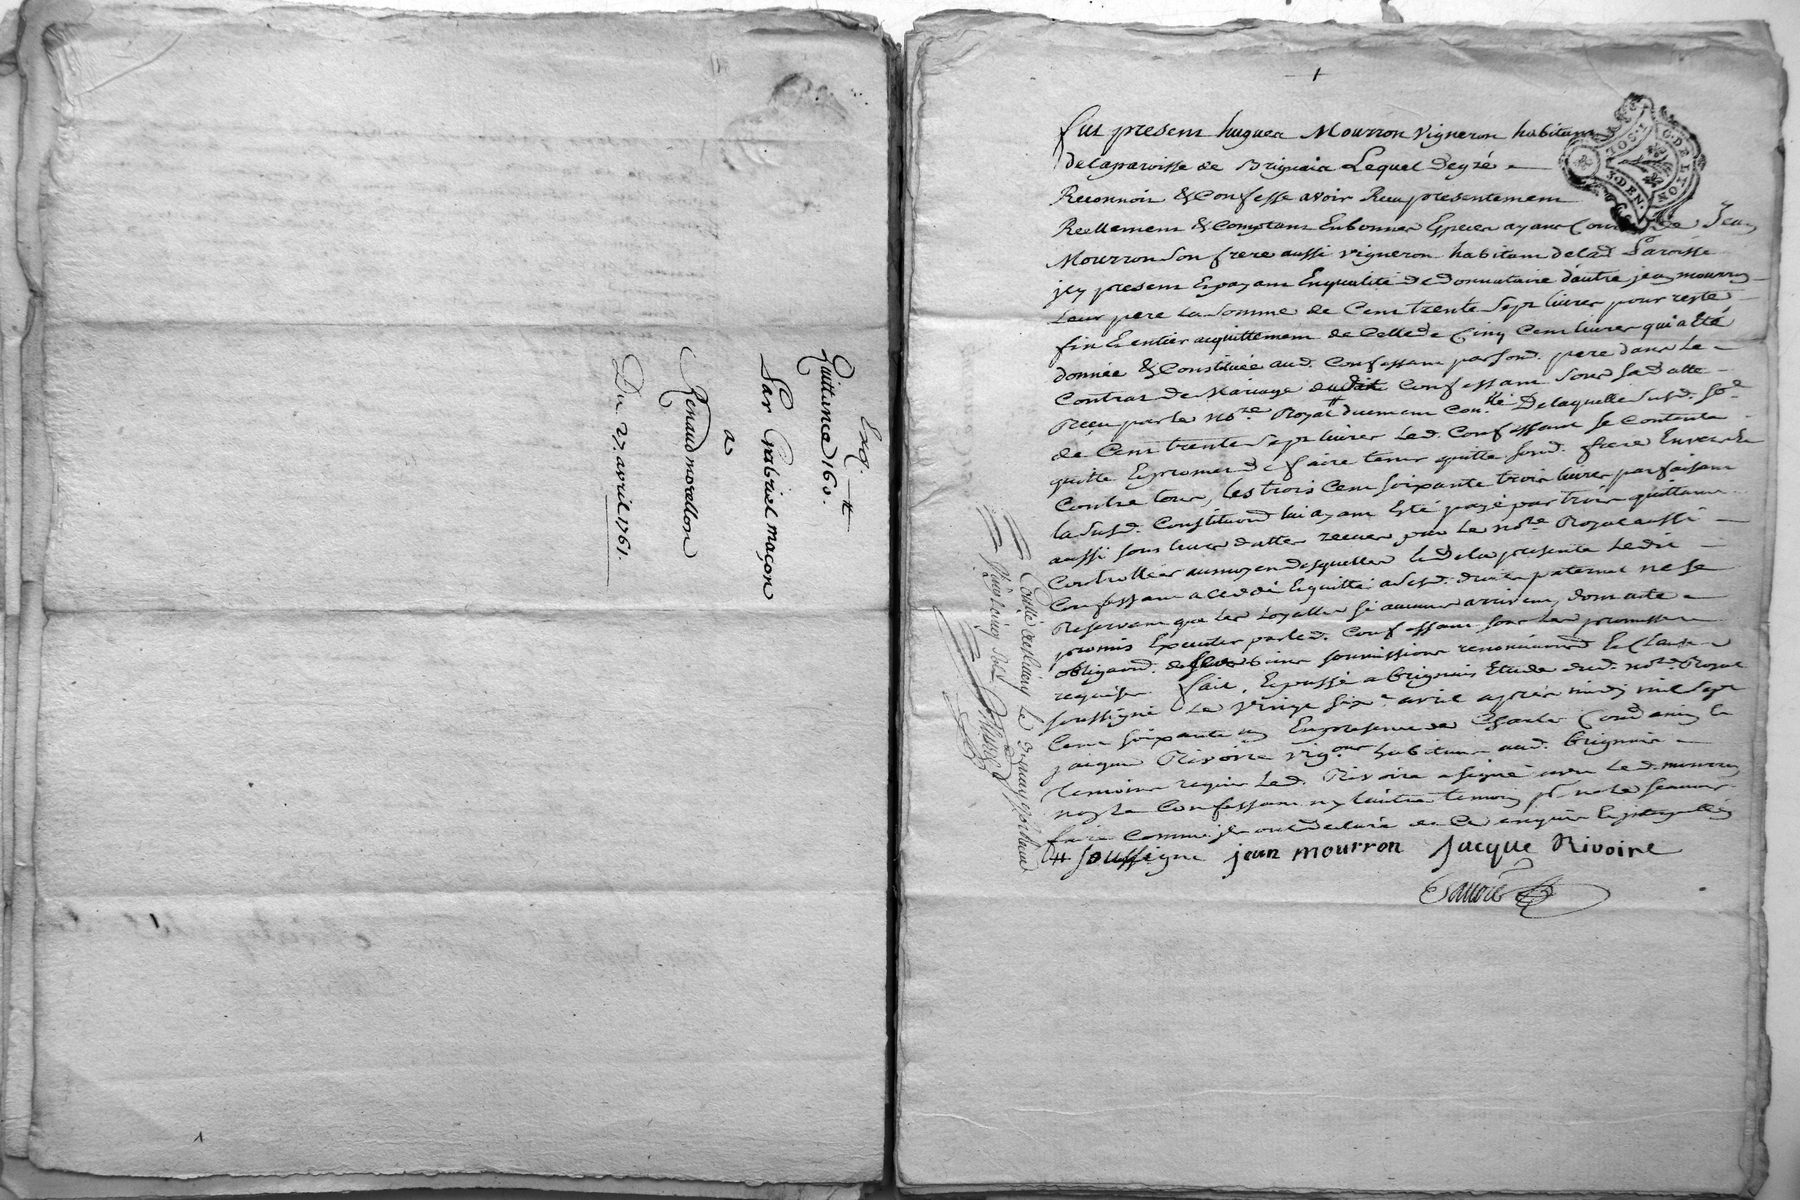 Exq.
Quittance 160.#
Par Gabriel maçon
a
Renaud morellon
Du 27. avril 1761
fut present hugues Mourron Vigneron habitant
de la paroisse de Brignais Lequel de gré
Reconnoit & Confesse avoir Receu presentement
Reellement & Comptant En bonnes Especes ayant Cours de Jean
Mourron Son frere aussi vigneron habitant de lad Paroisse
jcy present Et payant En qualité de donnataire d'autre jean mourron
Leur pere la Somme de Cent trente Sept livres pour reste
fin & entier acquittement de Celle de Cinq Cent livres qui a Eté
donnée & Constituée aud. Confessant par sond. pere dans Le
Contrat de Mariage dudit Confessant Sous Sa datte
Reçu par le No.re Royal duement Con.llé De laquelle Susd. So.e
de Cent trente Sept livres Led. Confessant Se Contente
quitte Et promet faire tenir quitte Sond. frere Envers &
Contre tous, les trois Cent soixante trois livres parfaisant
la Susd. Constituon lui ayant Eté payé par trois quittances
aussi sous leurs dattes receues par Le no.re Royal aussi
Controllées au moyen desquelles Et de la presente Ledit
Confessant a Cedé Et quitté a Sesd. droits paternel ne Se
Reservant que les Loyelles Si aucunes arrivent, dont acte
promis Executer par led. Confessant sous Les promesses
obligaons de ses biens soumissions renonciaons Et Clauses
requises. fait, Et passé a brignais Etude dud. no.re Royal
soussigné Le vingt six.e avril après midy mil Sept
Cent soixante un En presence de Charle
jacque Rivoire vig.ons habitans aud. brignais
temoins requis Led. Rivoire a signé avec Led. mourron
non Le Confessant ny l'autre temoin p.r ne le Scavoir
faire Comme jls ont declaré de Ce enquis & jnterpellés
soussigné jean mourron Jacque Rivoire
G. DE LYON
3. DEN.